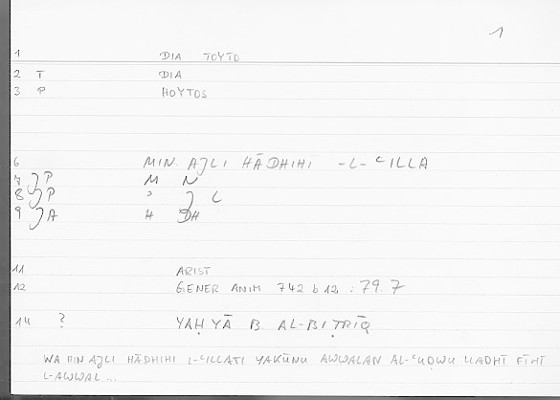 1
1 DIA TOYTO
2 T DIA
3 P HOYTOS
6 MIN AJLI HĀDHIHI -L-ʿILLA
7 JP M N
8 JP ʾ J L
9 JA H DH
11 ARIST
12 GENER ANIM 742 b 12 : 79.7
14 ? YAḤYĀ B AL-BIṬRĪQ
WA MIN AJLI HĀDHIHI L-ʿILLATI YAKŪNU AWWALAN AL-ʿUḌWU LLADHĪ FĪHI
L-AWWAL...